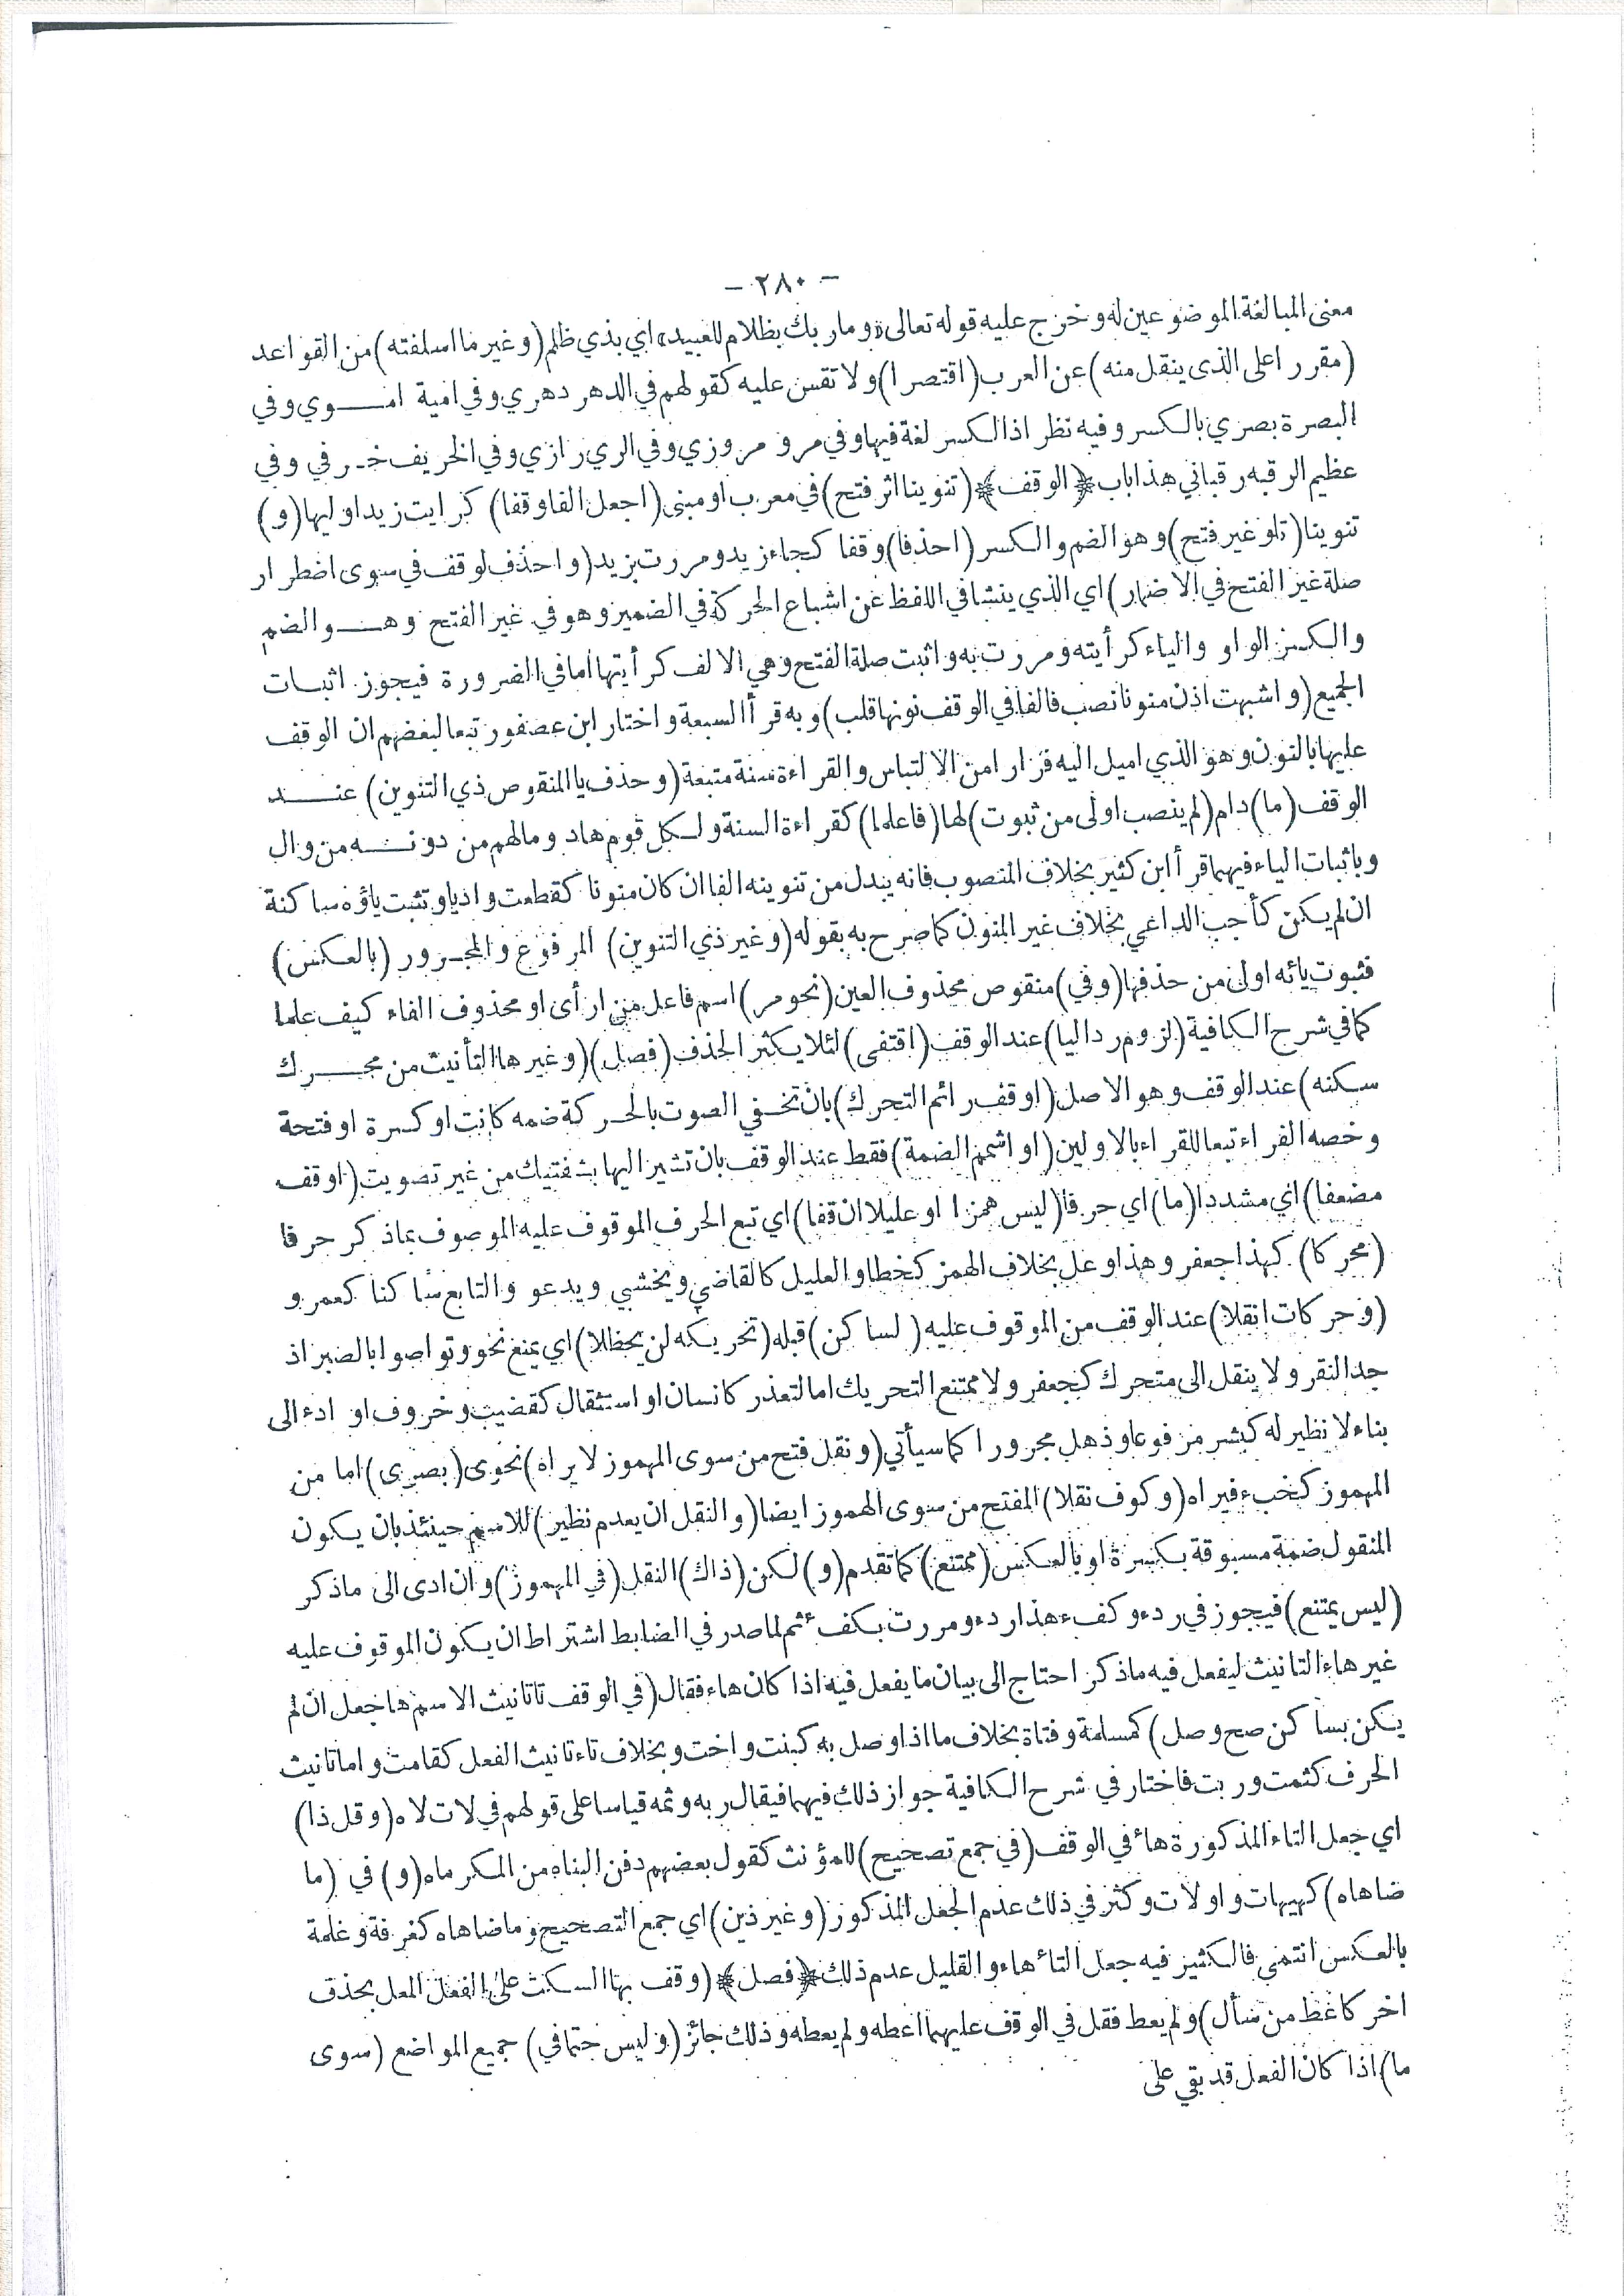 - ٢٨٠ -
معنى المبالغة الموضوعين له وخرج عليه قوله تعالى «وما ربك بظلام للعبيد» اي بذي ظلم (وغير ما اسلفته) من القواعد
(مقررا على الذى ينقل منه) عن العرب (اقتصرا) ولا تقس عليه كقولهم في الدهر دهري وفي امية امـوي وفي
البصرة بصري بالكسر وفيه نظر اذ الكسر لغة فيها وفي مرو مروزي وفي الري رازي وفي الخريف خـرفي وفي
عظيم الرقبه رقباني هذا باب ﴿الوقف﴾ (تنوينا اثر فتح) في معرب او مبنى (اجعل الفا وقفا) كرايت زيدا وايها (و)
تنوينا (تلو غير فتح) وهو الضم والكسر (احذفا) وقفا كجاء زيد ومررت بزيد (واحذف لوقف في سوى اضطرار
صلة غير الفتح في الاضمار) اي الذي ينشا في اللفظ عن اشباع الحركة في الضمير وهو في غير الفتح وهـو الضم
والكسر الواو والياء كرأيته ومررت به واثبت صلة الفتح وهي الالف كرأيتها اما في الضرورة فيجوز اثبات
الجميع (واشبهت اذن منونا نصب فالفا في الوقف نونها قلب) وبه قرأ السبعة واختار ابن عصفور تبعا لبعضهم ان الوقف
عليها بالنون وهو الذي اميل اليه فرارا من الالتباس والقراءة سنة متبعة (وحذف يا المنقوص ذي التنوين) عنـد
الوقف (ما) دام (لم ينصب اولى من ثبوت) لها (فاعلما) كقراءة الستة ولكل قوم هاد ومالهم من دونـه من وال
وباثبات الياء فيهما قرأ ابن كثير بخلاف المنصوب فانه يبدل من تنوينه الفا ان كان منونا كقطعت واديا وتثبت ياؤه ساكنة
ان لم يكن كأجب الداعي بخلاف غير المنون كما صرح به بقوله (وغير ذي التنوين) المرفوع والمجـرور (بالعكس)
فثبوت يائه اولى من حذفها (وفي) منقوص محذوف العين (نحو مر) اسم فاعل من ارأى او محذوف الفاء كيف علما
كما في شرح الكافية (لزوم رد اليا) عند الوقف (اقتفى) لئلا يكثر الحذف (فصل) (وغير ها التأنيث من محـرك
سكنه) عند الوقف وهو الاصل (او قف رائم التحرك) بان تخـفي الصوت بالحـركة ضمه كانت او كسرة او فتحة
وخصه الفراء تبعا للقراء بالاولين (او اشمم الضمة) فقط عند الوقف بان تشير اليها بشفتيك من غير تصويت (او قف
مضعفا) اي مشددا (ما) اي حرفا (ليس همزا او عليلا ان قفا) اي تبع الحرف الموقوف عليه الموصوف بما ذكر حرفا
(محركا) كهذا جعفر وهذا وعل بخلاف الهمز كخطا والعليل كالقاضي ويخشى ويدعو والتابع ساكنا كعمرو
(وحركات انقلا) عند الوقف من الموقوف عليه (لساكن) قبله (تحريكه لن يحظلا) اي يمنع نحو وتواصوا بالصبر اذ
جد النقر ولا ينقل الى متحرك كجعفر ولا ممتنع التحريك اما لتعذر كانسان او استثقال كقضيب وخروف او ادء الى
بناء لا نظير له كبشر مرفوعا وذهل مجرورا كما سيأتي (ونقل فتح من سوى المهموز لا يراه) نحوى (بصرى) اما من
المهموز كخبء فيراه (وكوف نقلا) المفتح من سوى الهموز ايضا (والنقل ان يعدم نظير) للاسم حينئذ بان يكون
المنقول ضمة مسبوقة بكسرة او بالعكس (ممتنع) كما تقدم (و) لكن (ذاك) النقل (في المهموز) وان ادى الى ما ذكر
(ليس يمتنع) فيجوز في ردء وكفء هذا ردء ومررت بكفء ثم لما صدر في الضابط اشتراط ان يكون الموقوف عليه
غير هاء التانيث ليفعل فيه ما ذكر احتاج الى بيان ما يفعل فيه اذا كان هاء فقال (في الوقف تا تانيث الاسم ها جعل ان لم
يكن بساكن صح وصل) كمسلمة وفتاة بخلاف ما اذا وصل به كبنت واخت وبخلاف تاء تانيث الفعل كقامت واما تانيث
الحرف كثمت وربت فاختار في شرح الكافية جواز ذلك فيهما فيقال ربه وثمه قياسا على قولهم في لات لاه (وقل ذا)
اي جعل التاء المذكورة هاء في الوقف (في جمع تصحيح) للمؤنث كقول بعضهم دفن البناه من المكرماه (و) في (ما
ضاهاه) كهيهات واولات وكثر في ذلك عدم الجعل المذكور (وغير ذين) اي جمع التصحيح وما ضاهاه كغرفة وغلمة
بالعكس انتمى فالكثير فيه جعل التاء هاء والقليل عدم ذلك ﴿فصل﴾ (وقف بها السكت على الفعل المعل بحذف
اخر كاعط من سأل) ولم يعط فقل في الوقف عليهما اعطه ولم يعطه وذلك جائز (وليس حتما في) جميع المواضع (سوى
ما) اذا كان الفعل قد بقي على